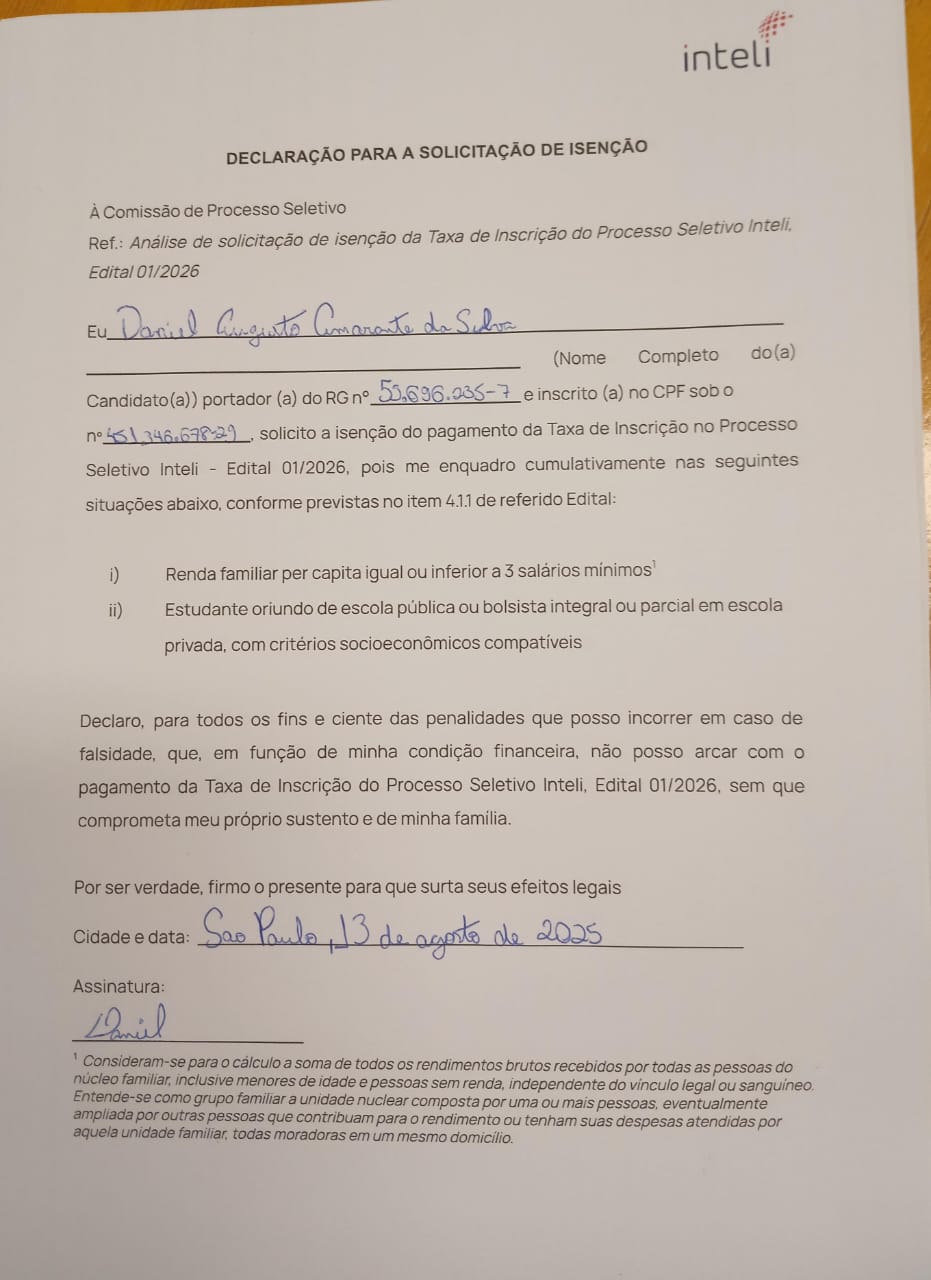 inteli
DECLARAÇÃO PARA A SOLICITAÇÃO DE ISENÇÃO
À Comissão de Processo Seletivo
Ref.: Análise de solicitação de isenção da Taxa de Inscrição do Processo Seletivo Inteli,
Edital 01/2026
Eu Daniel Augusto Amarante da Silva
(Nome Completo do(a)
Candidato(a)) portador (a) do RG nº 53.696.035-7 e inscrito (a) no CPF sob o
nº 451.346.678-29, solicito a isenção do pagamento da Taxa de Inscrição no Processo
Seletivo Inteli - Edital 01/2026, pois me enquadro cumulativamente nas seguintes
situações abaixo, conforme previstas no item 4.1.1 de referido Edital:
i) Renda familiar per capita igual ou inferior a 3 salários mínimos¹
ii) Estudante oriundo de escola pública ou bolsista integral ou parcial em escola
privada, com critérios socioeconômicos compatíveis
Declaro, para todos os fins e ciente das penalidades que posso incorrer em caso de
falsidade, que, em função de minha condição financeira, não posso arcar com o
pagamento da Taxa de Inscrição do Processo Seletivo Inteli, Edital 01/2026, sem que
comprometa meu próprio sustento e de minha família.
Por ser verdade, firmo o presente para que surta seus efeitos legais
Cidade e data: Sao Paulo, 13 de agosto de 2025
Assinatura:
Daniel
¹ Consideram-se para o cálculo a soma de todos os rendimentos brutos recebidos por todas as pessoas do
núcleo familiar, inclusive menores de idade e pessoas sem renda, independente do vínculo legal ou sanguíneo.
Entende-se como grupo familiar a unidade nuclear composta por uma ou mais pessoas, eventualmente
ampliada por outras pessoas que contribuam para o rendimento ou tenham suas despesas atendidas por
aquela unidade familiar, todas moradoras em um mesmo domicílio.